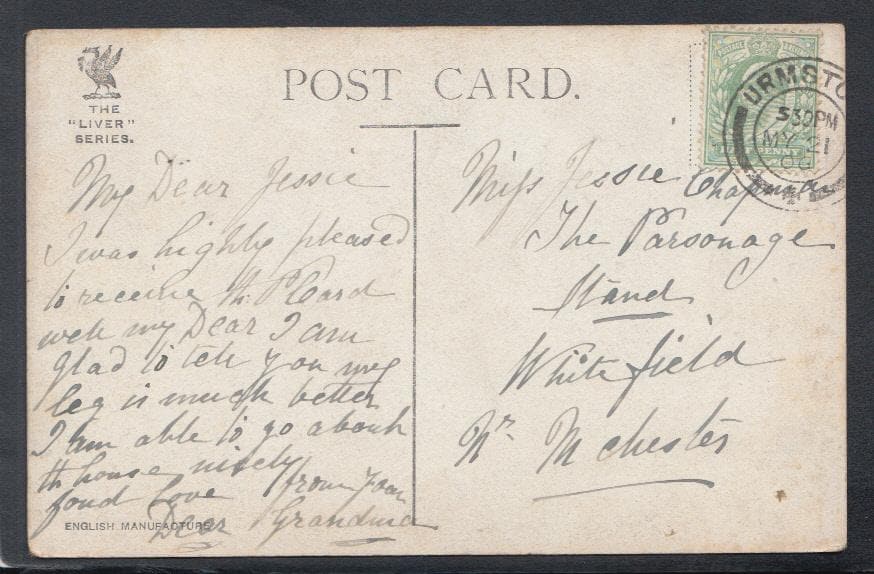 THE
"LIVER"
SERIES.
POST CARD.
POSTAGE
HALF PENNY
URMSTO
3 30 PM
MY 21
My Dear Jessie
I was highly pleased
to receive th. P Card
well my Dear I am
glad to tell you my
leg is much better
I am able to go about
th house nicely
fond love from your
Dear Grandma
ENGLISH MANUFACTURE
Miss Jessie Chapman
The Parsonage
Stand
Whitefield
Nr. Mchester